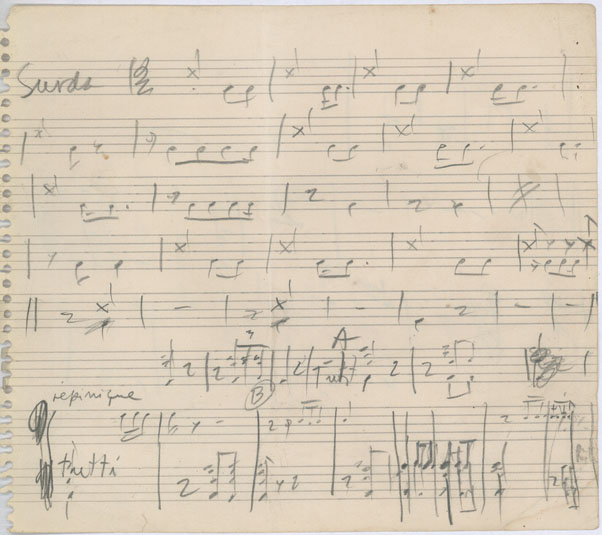 Surdo
A
Tutti
B
repinique
tutti